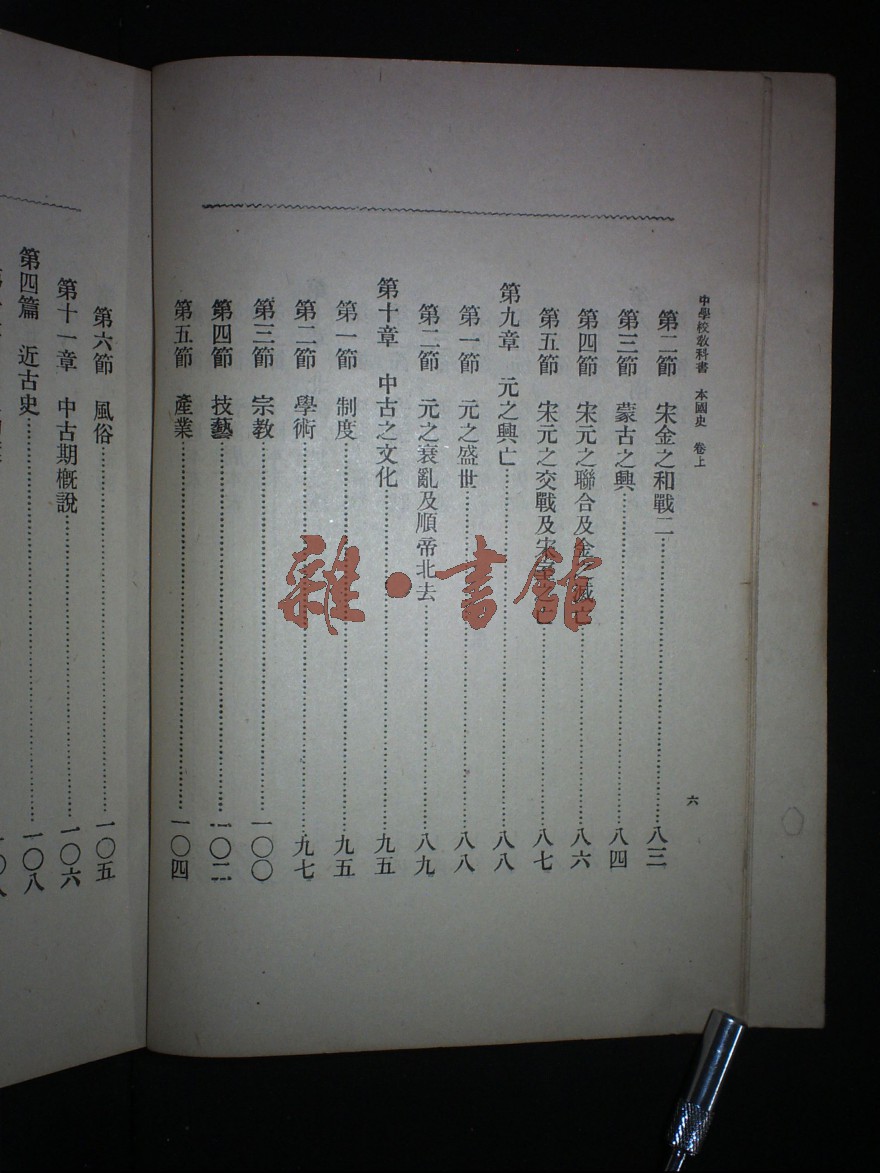 中學校敎科書 本國史 卷上
六
第二節 宋金之和戰二……八三
第三節 蒙古之興……八四
第四節 宋元之聯合及金之滅亡……八六
第五節 宋元之交戰及宋室之亡……八七
第九章 元之興亡……八八
第一節 元之盛世……八八
第二節 元之衰亂及順帝北去……八九
第十章 中古之文化……九五
第一節 制度……九五
第二節 學術……九七
第三節 宗教……一〇〇
第四節 技藝……一〇二
第五節 產業……一〇四
第六節 風俗……一〇五
第十一章 中古期槪說……一〇六
第四篇 近古史……一〇八
雜·書館